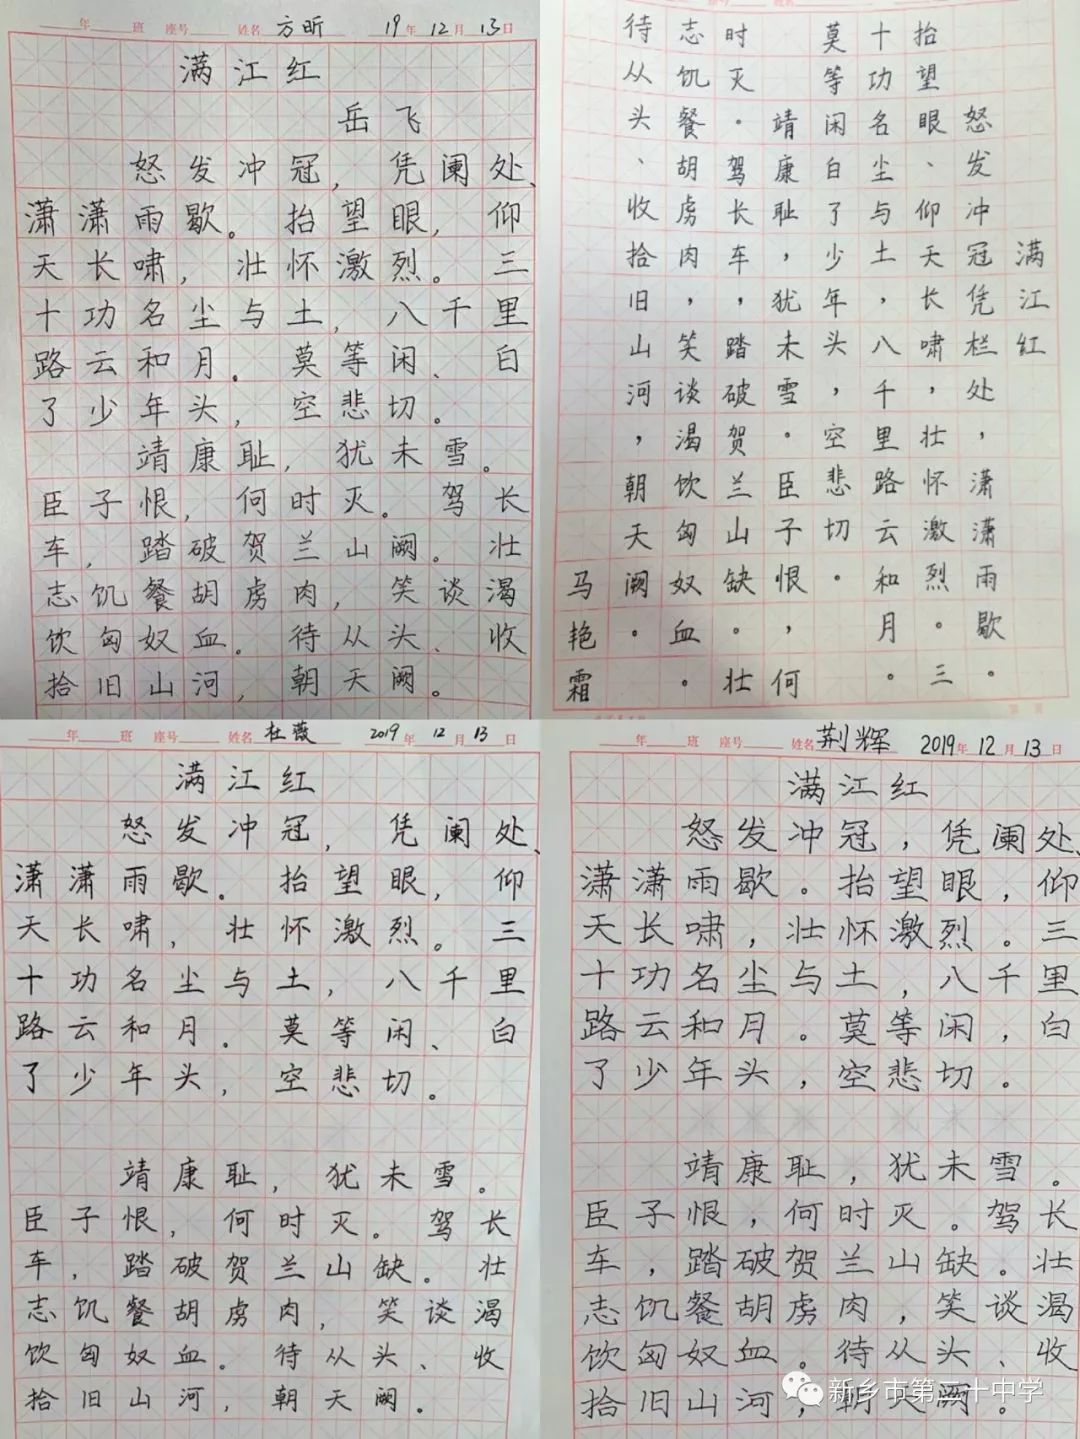 年 班 座号 姓名 方昕 19年12月13日
满江红
岳飞
怒发冲冠，凭阑处、
潇潇雨歇。抬望眼，仰
天长啸，壮怀激烈。三
十功名尘与土，八千里
路云和月。莫等闲、白
了少年头，空悲切。
靖康耻，犹未雪。
臣子恨，何时灭。驾长
车，踏破贺兰山阙。壮
志饥餐胡虏肉，笑谈渴
饮匈奴血。待从头、收
拾旧山河，朝天阙。
满江红
怒发冲冠凭栏处，潇潇雨歇。
抬望眼、仰天长啸，壮怀激烈。三
十功名尘与土，八千里路云和月。
莫等闲白了少年头，空悲切。
靖康耻，犹未雪。臣子恨，何
时灭。驾长车，踏破贺兰山缺。壮
志饥餐胡虏肉，笑谈渴饮匈奴血。
待从头、收拾旧山河，朝天阙。
马艳霜
年 班 座号 姓名 杜薇 2019年12月13日
满江红
怒发冲冠，凭阑处、
潇潇雨歇。抬望眼，仰
天长啸，壮怀激烈。三
十功名尘与土，八千里
路云和月。莫等闲、白
了少年头，空悲切。
靖康耻，犹未雪。
臣子恨，何时灭。驾长
车，踏破贺兰山缺。壮
志饥餐胡虏肉，笑谈渴
饮匈奴血。待从头、收
拾旧山河，朝天阙。
年 班 座号 姓名 荆辉 2019年12月13日
满江红
怒发冲冠，凭阑处、
潇潇雨歇。抬望眼，仰
天长啸，壮怀激烈。三
十功名尘与土，八千里
路云和月。莫等闲，白
了少年头，空悲切。
靖康耻，犹未雪。
臣子恨，何时灭。驾长
车，踏破贺兰山缺。壮
志饥餐胡虏肉，笑谈渴
饮匈奴血。待从头、收
拾旧山河，朝天阙。
新乡市第二十中学